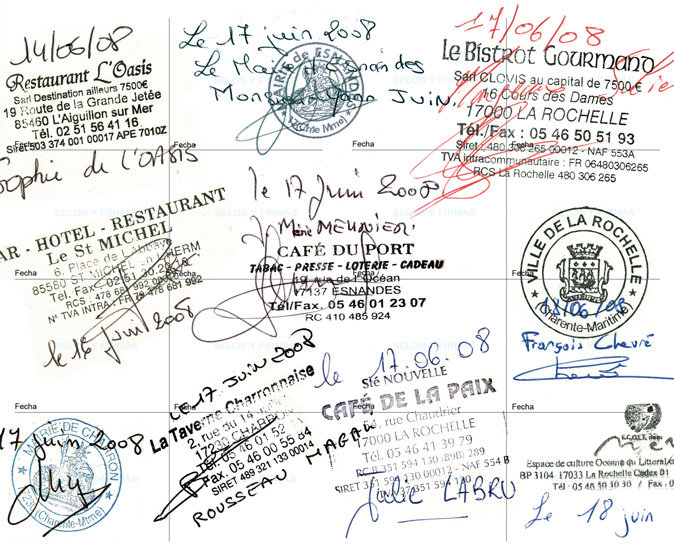 14/06/08
Restaurant L'Oasis
Sarl Destination ailleurs 7500€
19 Route de la Grande Jetée
85460 L'Aiguillon sur Mer
Tél. 02 51 56 41 16
Siret 503 374 001 00017 APE 7010Z
Sophie de L'OASIS
Le 17 juin 2008
Le Maire d'Esnandes
Monsieur Yann Juin.
MAIRIE de ESNANDES
(Charente Mme)
17/06/08
Le Bistrot Gourmand
Sarl CLOVIS au capital de 7500 €
16 Cours des Dames
17000 LA ROCHELLE
Tél./Fax : 05 46 50 51 93
Siret 480 306 265 00012 - NAF 553A
TVA intracommunautaire : FR 06480306265
RCS La Rochelle 480 306 265
Fecha
Fecha
Fecha
SELOS Y FIRMAS
SELOS Y FIRMAS
BAR - HOTEL - RESTAURANT
Le St MICHEL
6, Place de L'Abbaye
85580 ST MICHEL en L'HERM
Tel. Fax 02.51.30.20
RCS : 478 681 992
N° TVA INTRA : FR 78 478 681 992
le 16 juin 2008
le 17 Juin 2008
Marie MEUNIER
CAFÉ DU PORT
TABAC - PRESSE - LOTERIE - CADEAU
rue de l'Océan
17137 ESNANDES
Tél/Fax. 05 46 01 23 07
RC 410 485 924
VILLE DE LA ROCHELLE
(Charente-Maritime)
/06/08
François Chevré
Fecha
Fecha
Fecha
17 Juin 2008
MAIRIE DE CHARRON
(Charente-Mtme)
LE 17 JUIN 2008
La Taverne Charronnaise
2, rue du 14
17230 CHARRON
Tél. 05 46 01 52
Fax. 05 46 00 55 84
SIRET 489 321 133 00014
ROUSSEAU MAGALI
le 17.06.08
Sté NOUVELLE
CAFÉ DE LA PAIX
54, rue Chaudrier
17000 LA ROCHELLE
Tél. 05 46 41 39 79
RC B 351 594 130 (89B) 289
SIRET 351 594 130 00012 - NAF 554 B
Julie LABRU
Fecha
Fecha
Fecha
ECOLE de la
mer
Espace de culture Océane du Littoral
BP 3104 17033 La Rochelle Cedex 01
Tél : 05 46 50 30 30 / Fax
Le 18 juin